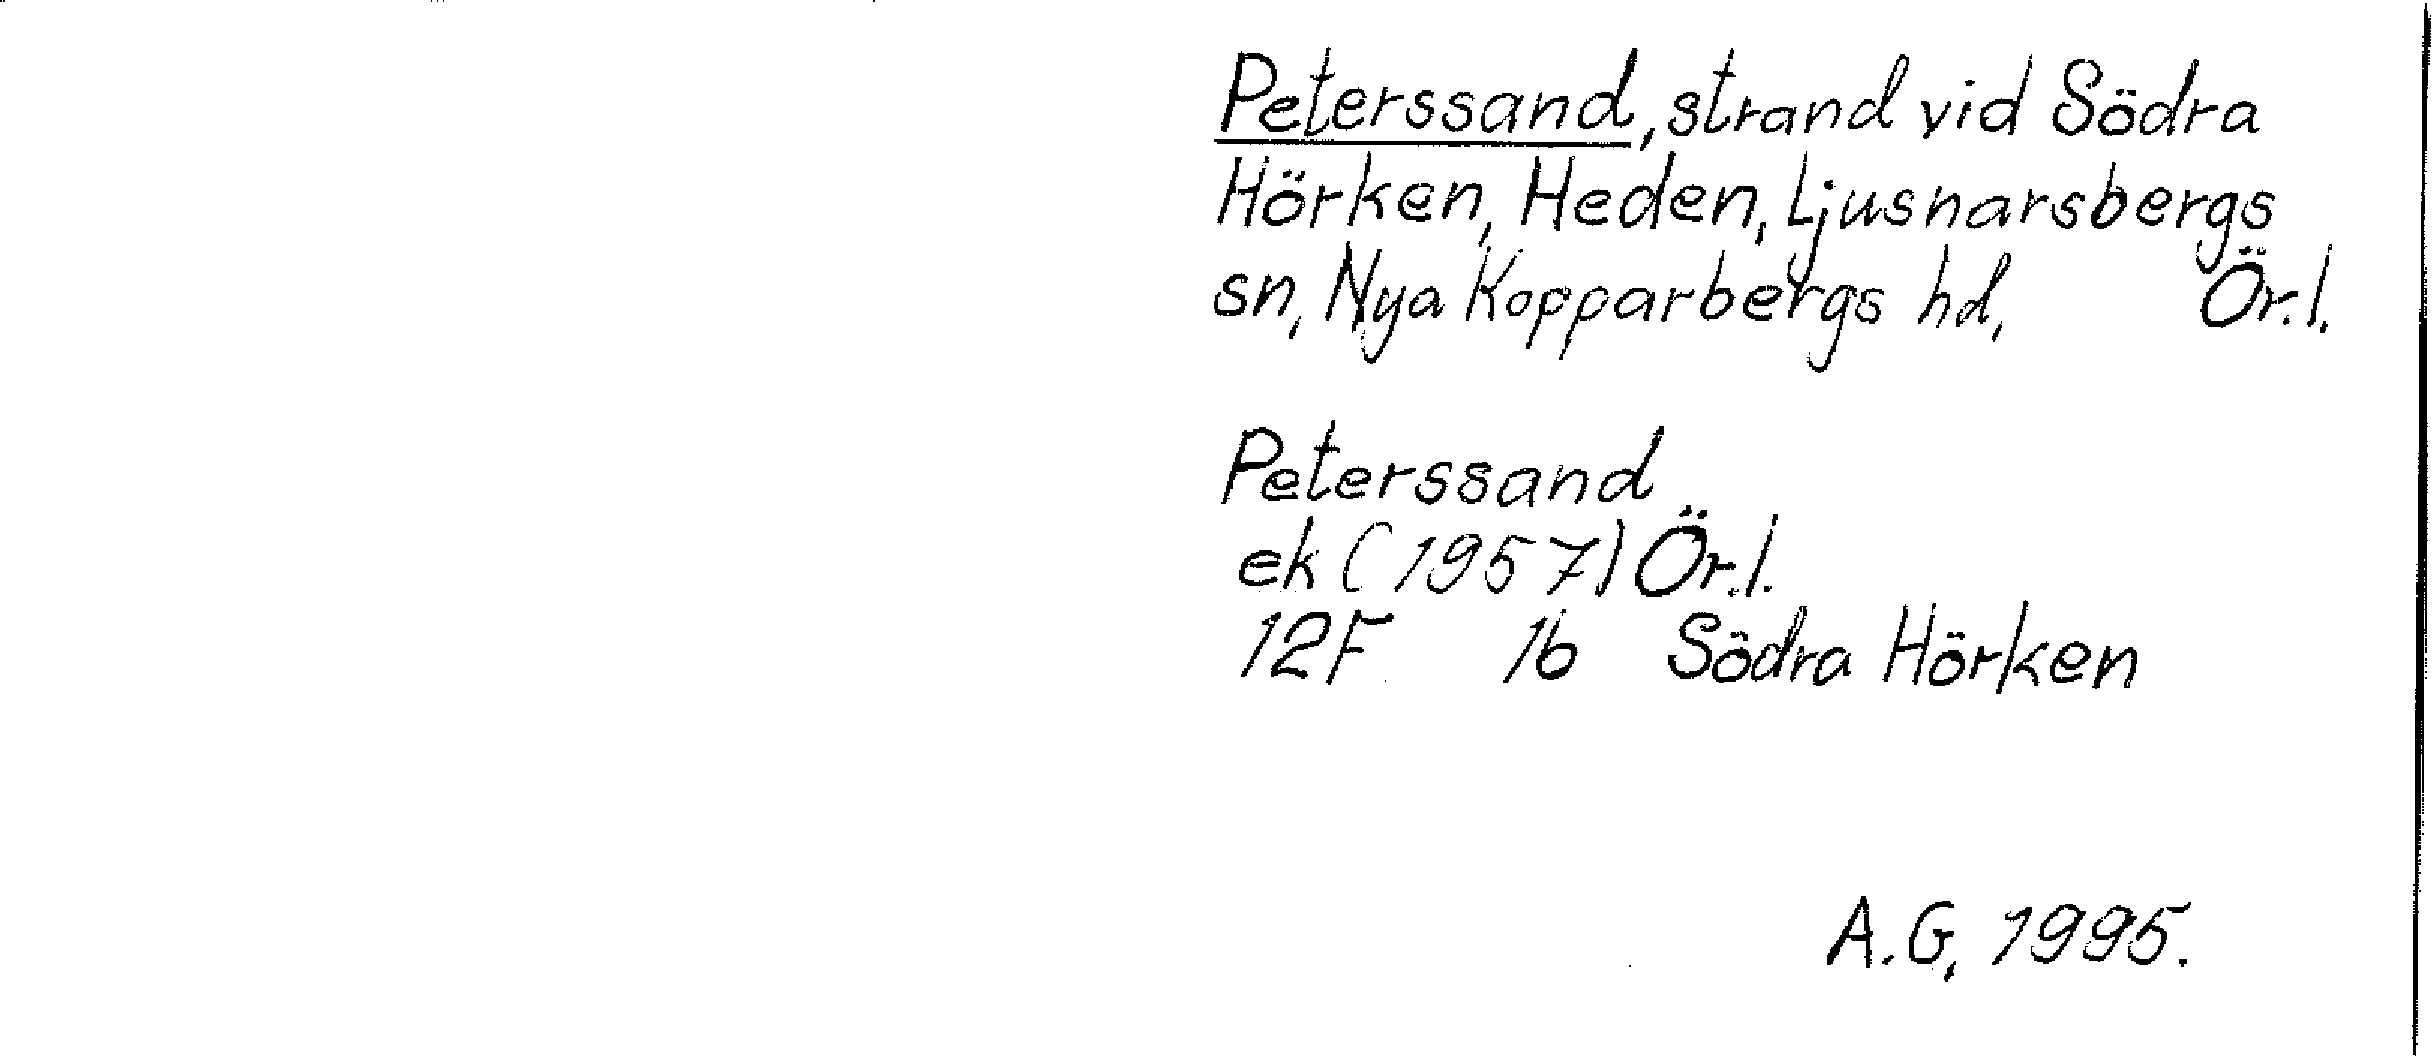 Peterssand, strand vid Södra
Hörken, Heden, Ljusnarsbergs
sn, Nya Kopparbergs hd, Ör.l.
Peterssand
ek (1957) Ör.l.
12F 1b Södra Hörken
A.G, 1995.